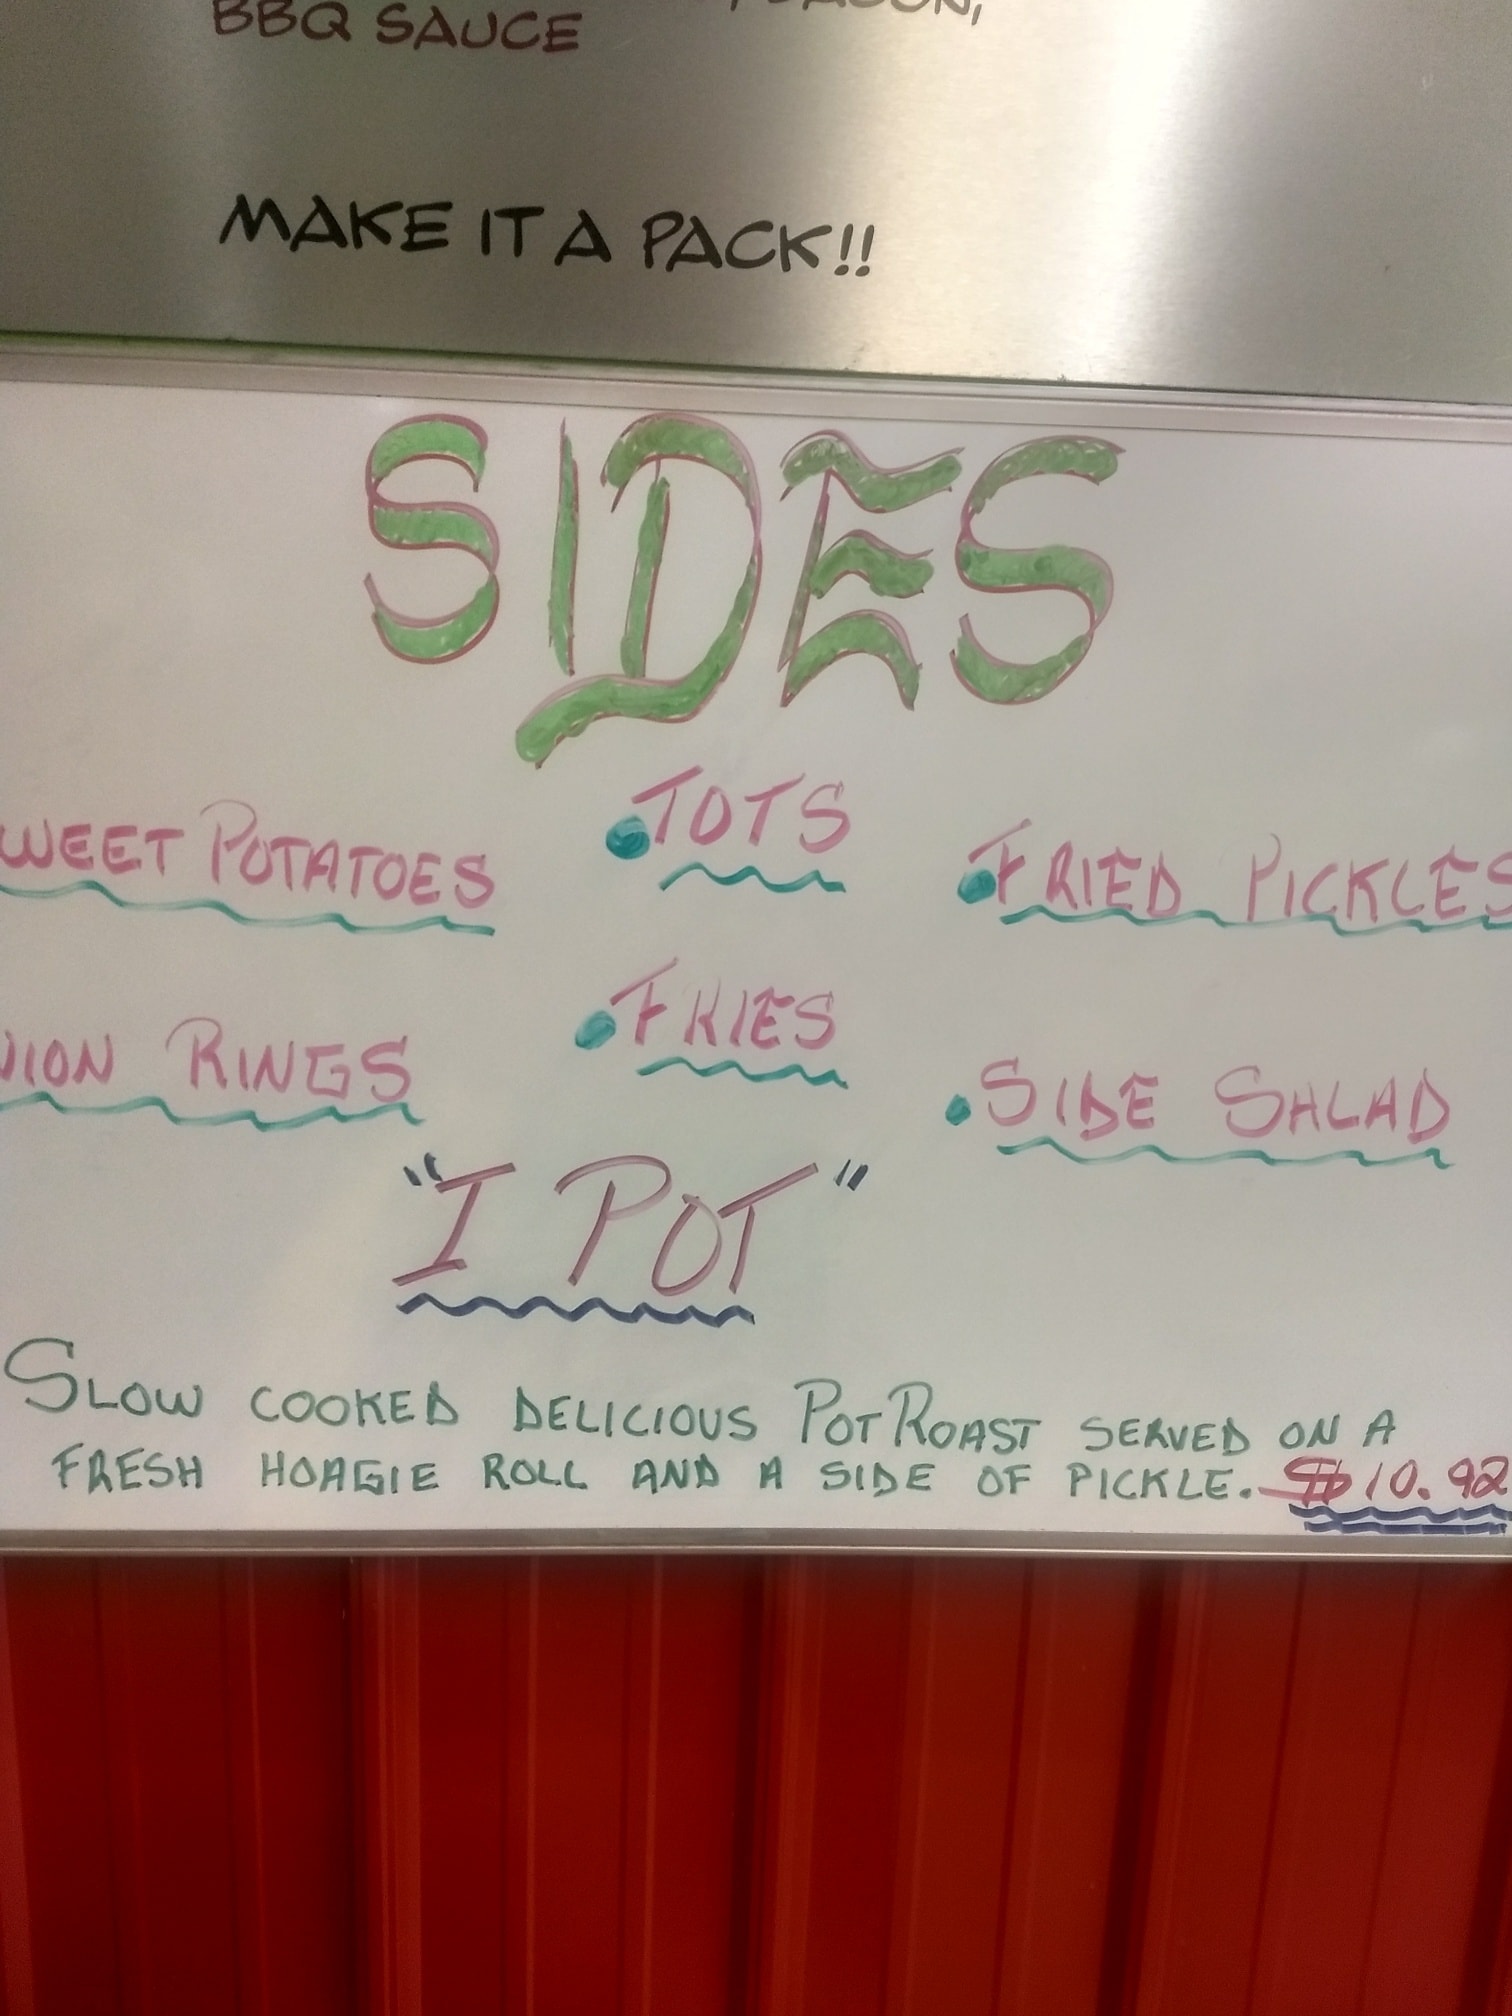 BBQ SAUCE
MAKE IT A PACK!!
SIDES
WEET POTATOES
•TOTS
•FRIED PICKLES
NION RINGS
•FRIES
•SIDE SALAD
"I POT"
SLOW COOKED DELICIOUS POT ROAST SERVED ON A
FRESH HOAGIE ROLL AND A SIDE OF PICKLE. $10.92